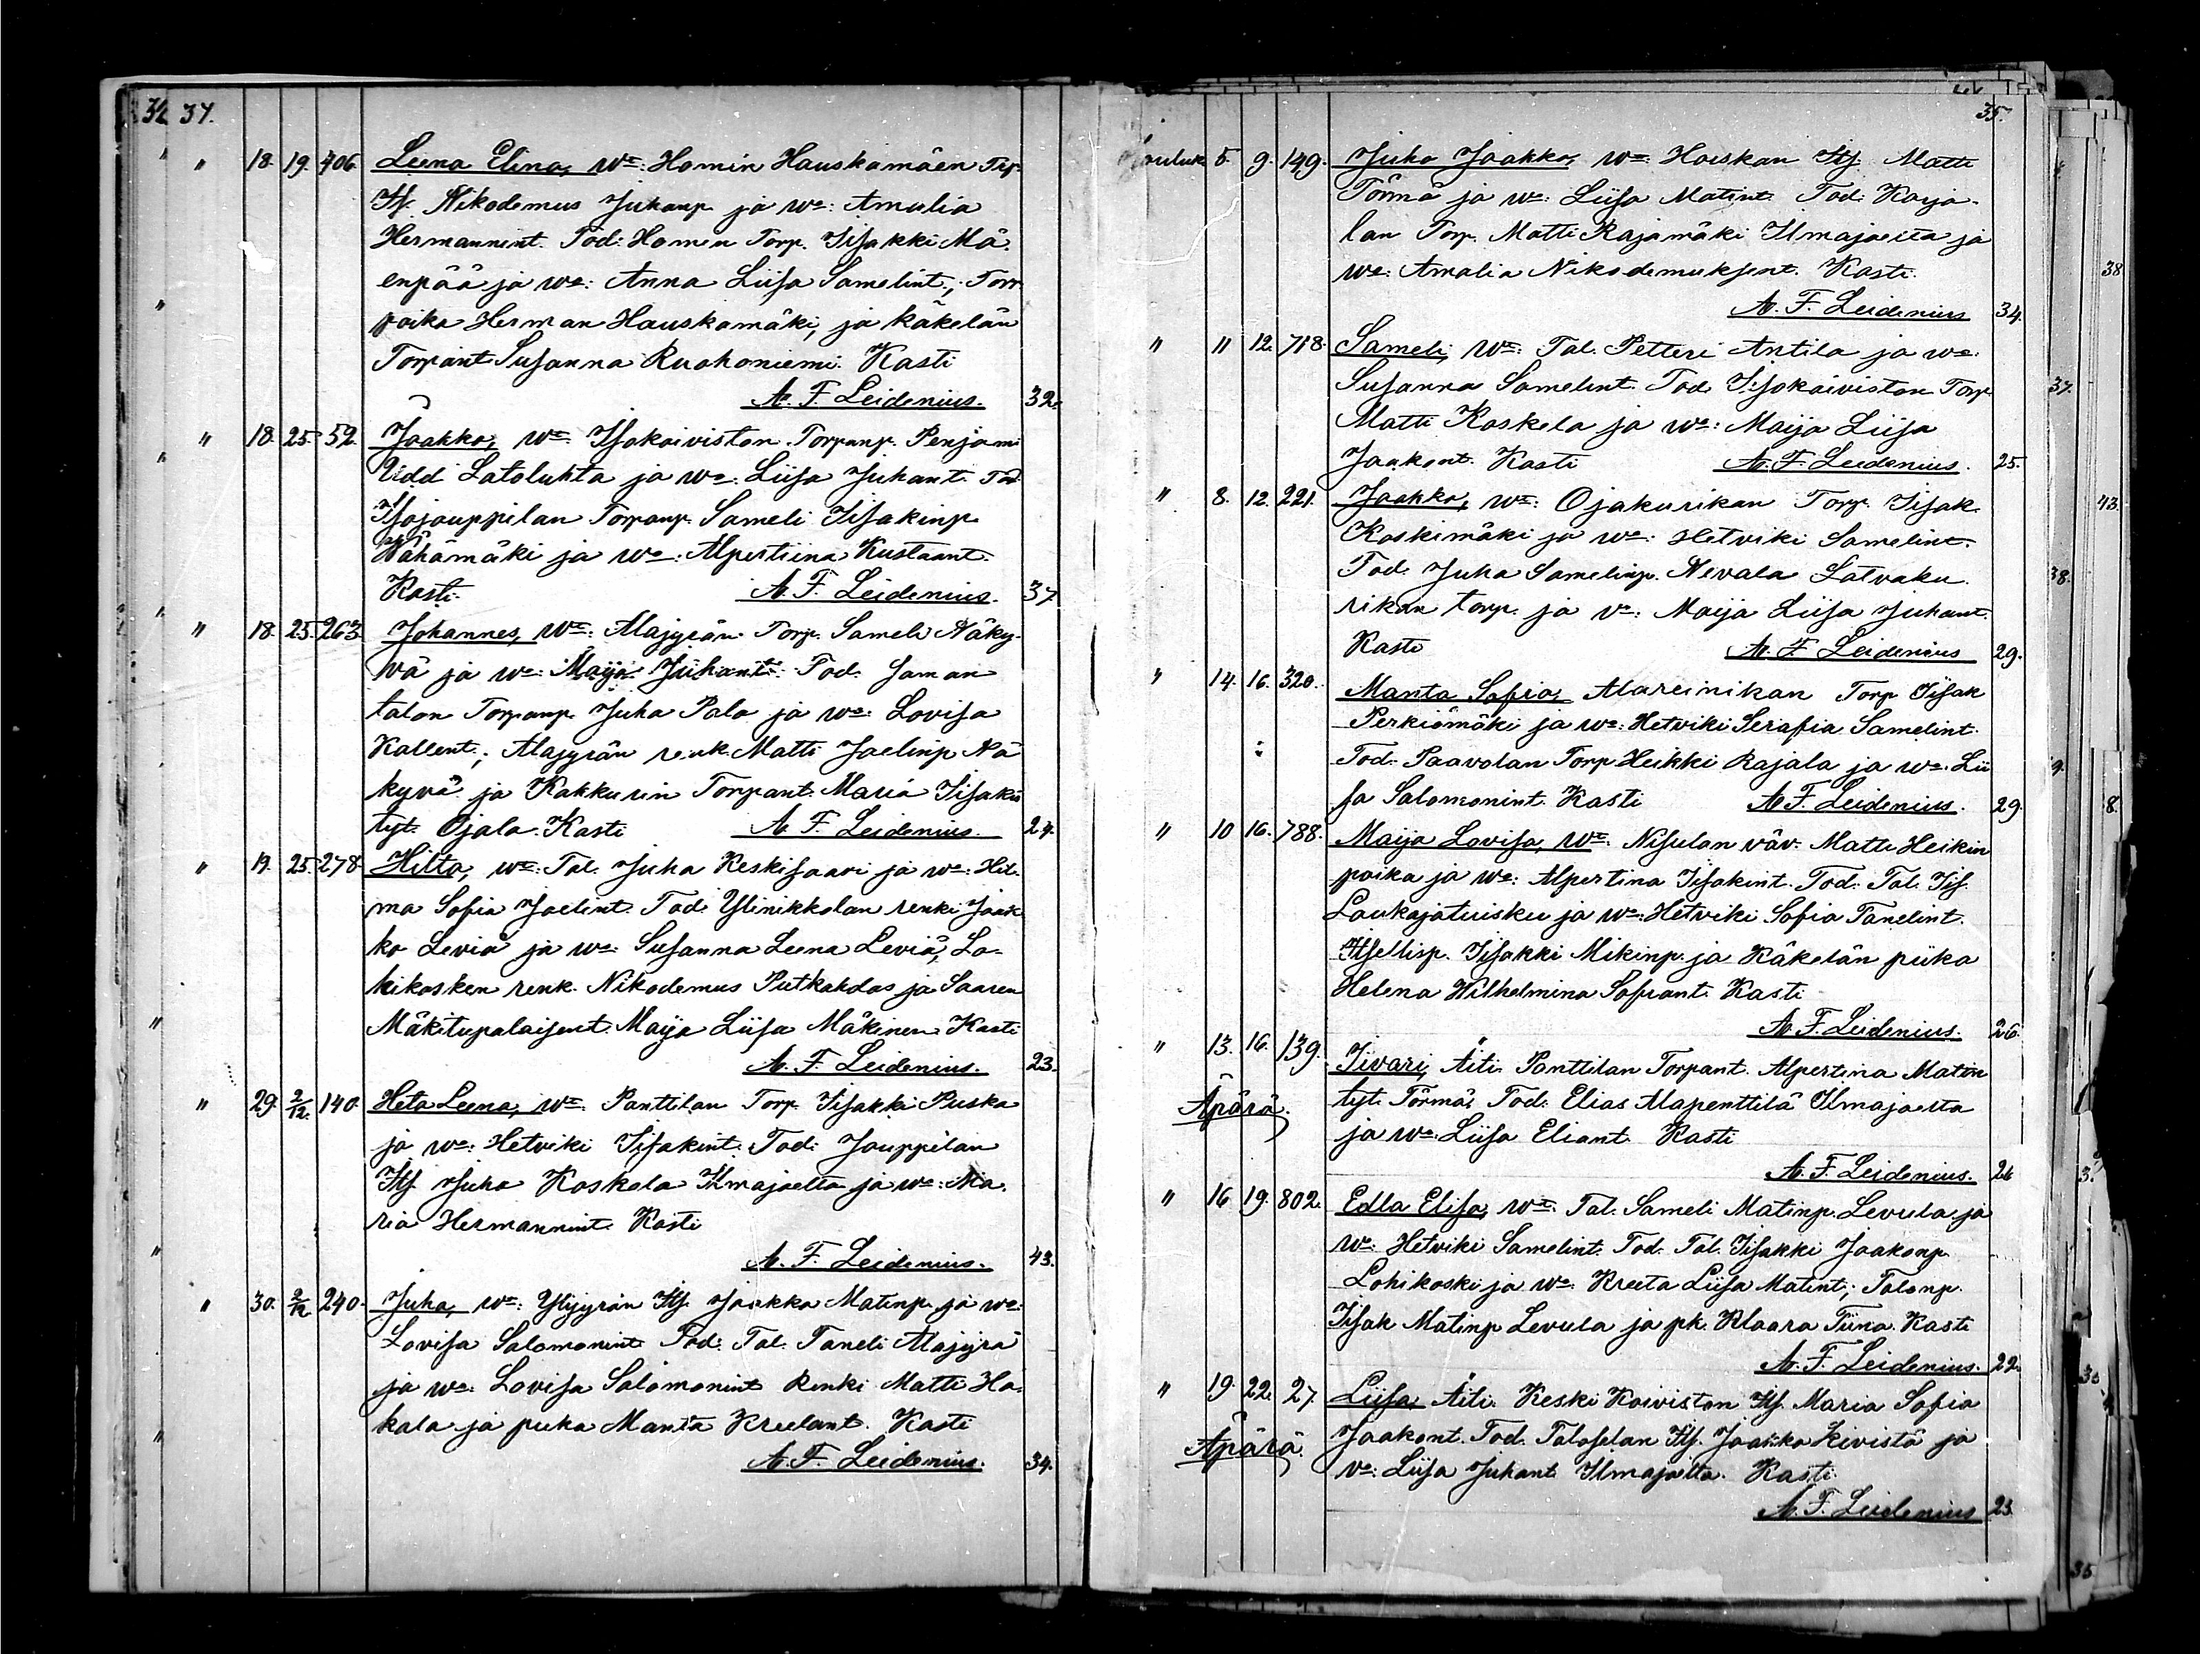 34.
" 18. 19. 406. Leena Elina, Wa: Homin Hauskamäen Trp.
Its. Nikodemus Juhanp. ja wa: Amalia
Hermannint. Tod: Homin Torp. Iisakki Mä-
enpää ja wa: Anna Liisa Samelint., Torp
poika Herman Hauskamäki, ja Käkelän
Torpant. Susanna Ruohoniemi. Kasti
A. F. Leidenius. 32.
" 18. 25. 52. Jaakko, Wa: Isokoiviston Torpanp. Penjami
Udd Latoluhta ja wa: Liisa Juhant. Tod.
Isojouppilan Torpanp. Sameli Iisakinp.
Vähämäki ja wa: Alpertiina Kustaant.
Kasti. A. F. Leidenius. 37
" 18. 25. 263 Johannes, Wa: Alajyrän Torp. Sameli Näky-
vä ja wa: Maija Juhant. Tod. Jaman
talon Torpanp. Juha Palo ja wa: Lovisa
Kallent.; Alajyrän renk. Matti Joelinp. Nä
kyvä ja Kakkurin Torpant. Maria Iisakin
tyt. Ojala. Kasti A. F. Leidenius. 24.
" 19. 25. 278 Hilta, wa: Tal. Juha Keskisaari ja wa: Hil-
ma Sofia Joelint. Tod. Ylinikkolan renki Jaak
ko Leviä ja wa: Susanna Leena Leviä, Lo-
hikosken renk. Nikodemus Putkahdas ja Saaren
Mäkitupalaisent. Maija Liisa Mäkinen Kasti
A. F. Leidenius. 23.
" 29. 2/12. 140. Heta Leena, wa: Panttilan Torp. Iisakki Puska
ja wa: Hetviki Iisakint. Tod: Jouppilan
Its. Juha Koskela Ilmajoelta ja wa: Ma-
ria Hermannint. Kasti
A. F. Leidenius. 43.
" 30. 2/12 240. Juha, wa: Ylijyrän Its. Jaakko Matinp. ja wa:
Lovisa Salomonint. Tod: Tal. Taneli Alajyrä
ja wa: Lovisa Salomonint. Renki Matti Ha-
kala ja piika Manta Kreelant. Kasti
A. F. Leidenius. 34.
35.
Jouluk. 5. 9. 149. Juho Jaakko, Wa: Hoiskan Its. Matti
Törmä ja wa: Liisa Matint. Tod. Karja-
lan Torp. Matti Rajamäki Ilmajoelta ja
wa: Amalia Nikodemuksent. Kasti.
A. F. Leidenius 34.
" " 12. 718. Sameli, Wa: Tal. Petteri Antila ja wa:
Susanna Samelint. Tod. Isokoiviston Torp.
Matti Koskela ja wa: Maija Liisa
Jaakont. Kasti A. F. Leidenius. 25.
" 8. 12. 221. Jaakko, wa: Ojakurikan Torp. Iisak
Koskimäki ja wa: Hetviki Samelint.
Tod. Juha Samelinp. Nevala Latvaku-
rikan torp. ja va: Maija Liisa Juhant.
Kasti A. F. Leidenius 29.
" 14. 16. 320. Manta Sofia, Alareinikan Torp Iisak
Perkiömäki ja wa: Hetviki Serafia Samelint.
Tod. Paavolan Torp Heikki Rajala ja wa: Lii
sa Salomonint. Kasti A. F. Leidenius. 29.
" 10 16. 788. Maija Lovisa, Wa: Nisulan väv. Matti Heikin
poika ja wa: Alpertina Iisakint. Tod: Tal. Iis.
Laukajatuisku ja wa: Hetviki Sofia Tanelint.
Itsellisp. Iisakki Mikinp. ja Käkelän piika
Helena Wilhelmina Sofiant. Kasti
A. F. Leidenius. 26.
" 13. 16. 139. Iivari, Äiti Panttilan Torpant. Alpertina Matin
Äpärä. tyt. Törmä, Tod: Elias Alapenttilä Ilmajoelta
ja wa: Liisa Eliant. Kasti
A. F. Leidenius. 26
" 16. 19. 802. Edla Elisa, wa: Tal. Sameli Matinp. Levula ja
wa: Hetviki Samelint. Tod. Tal. Iisakki Jaakonp.
Lohikoski ja wa: Kreeta Liisa Matint.; Talonp.
Iisak Matinp Levula ja pk. Klaara Tiina. Kasti
A. F. Leidenius. 22.
" 19. 22. 27. Liisa, Äiti. Keski Koiviston Its. Maria Sofia
Äpärä. Jaakont. Tod. Taloselan Its. Jaakko Kivistö ja
va: Liisa Juhant. Ilmajoelta. Kasti.
A. F. Leidenius 23.